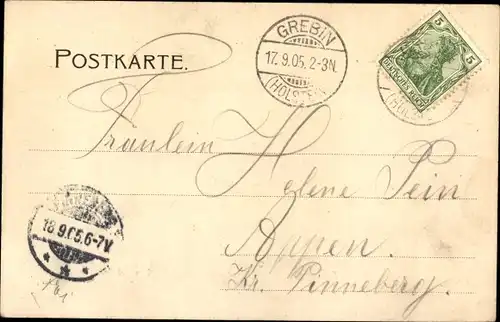 POSTKARTE.
GREBIN
17.9.05.2-3N.
(HOLSTEIN)
5 5
DEUTSCHES REICH
(HOLST
18.9.05.6-7V.
Fräulein
Helene Pein
Appen.
Kr. Pinneberg.